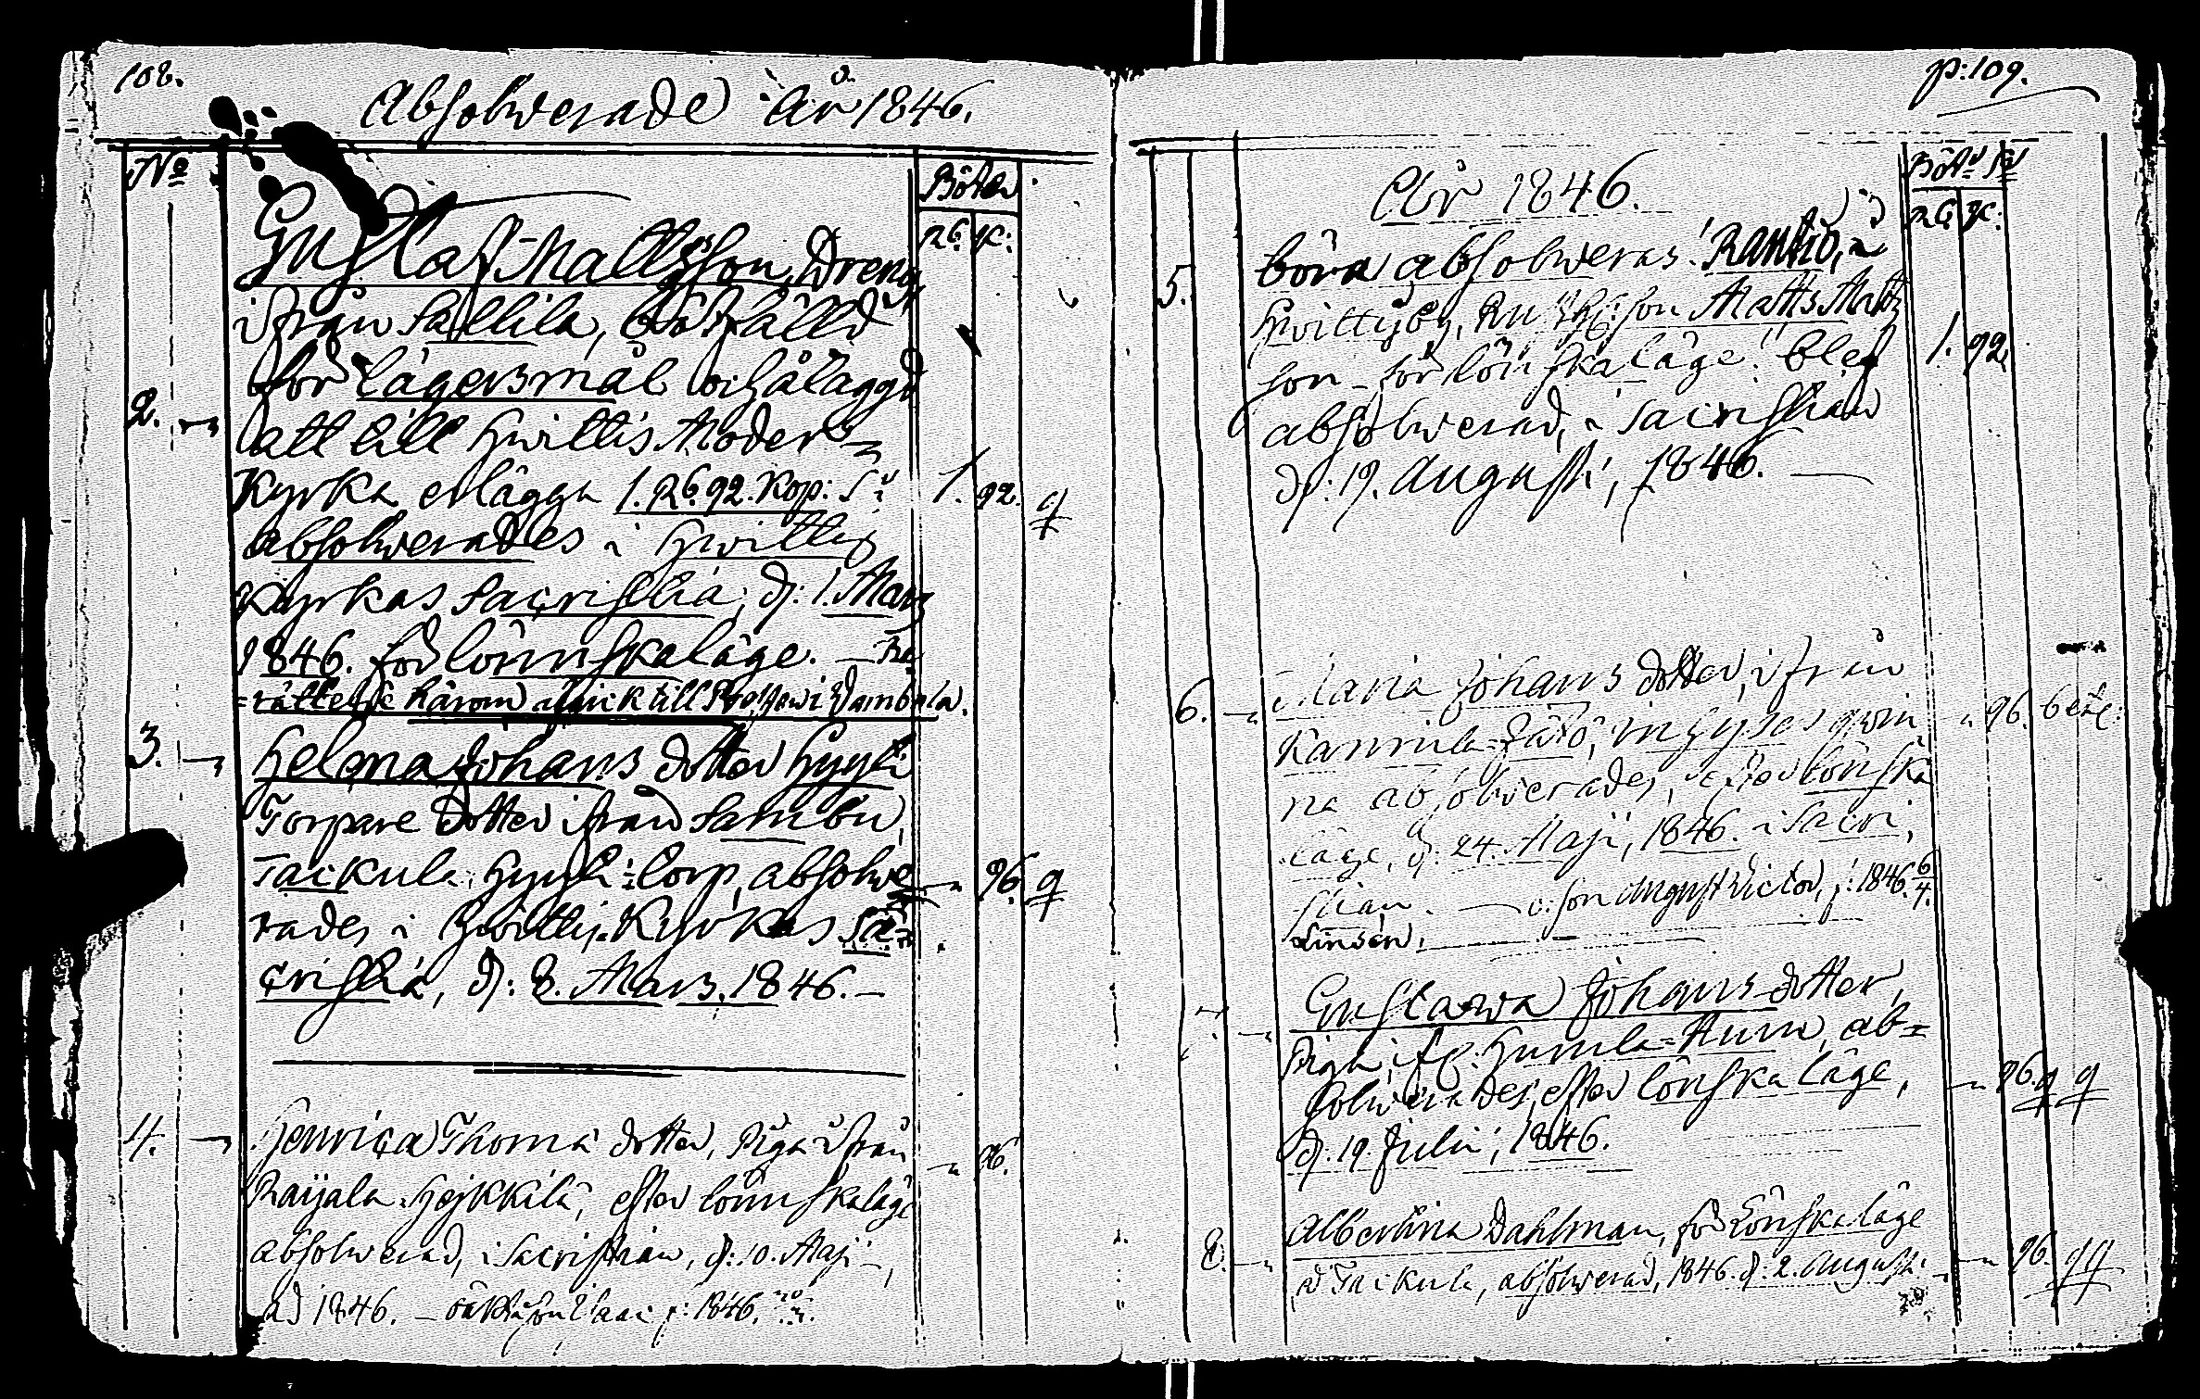 108.
Absolwerade år 1846.
No
Böter
RG. K:
Gustaf Mattsson, Dreng
ifrån Sallila, bötfälld
för lägersmål och ålaggd
2. att till Hwittis Moder=
Kyrka erlägga 1. RG. 92. Kop: S: 1. 92.
absolwerades i Hwittis
Kyrkas Sacristia, d: 1. Mars
1846. för lönnskaläge. — Un=
=rättelse härom afgick till Prosten i Wambula.
3. Helena Johans dotter Hyyki
Torpare dotter ifrån Sambu,
Taikula, Hyyki=torp, absolwe= 96.
rades i Hwittis Kyrkas Sa=
cristia, d: 8. Mars, 1846. —
4. Henrica Thomæ dotter, Piga ifrån 96.
Raijala Hejkkilä, efter lönnskaläge
absolwerad, i Sacristian, d: 10. Maji
1846. — oäkta son f: 1846.
p: 109.
År 1846.
Böt:
RG K:
5. böra absolweras: Rantio, i
Hwittisby, son Matts Matts
son för lönskaläge: blef 1. 92.
absolwerad, i Sacristian
d: 19. Augusti, 1846. —
6. Maria Johans dotter, ifrån 96. betl:
Kannula inhyses qwin
na absolwerades, efter lönska
läge, d: 24. Maji, 1846. i Sacri,
stian. — son August Victor, f: 1846. 6/4.
Linsén.
7. Gustawa Johans dotter,
Piga, Humla=Anni, ab=
solwerades, efter lönska läge, 96.
d: 19. Julii, 1846.
8. Albertina Dahlman, för Lönskaläge
Taikula, absolwerad, 1846. d: 2. Augusti. 96.